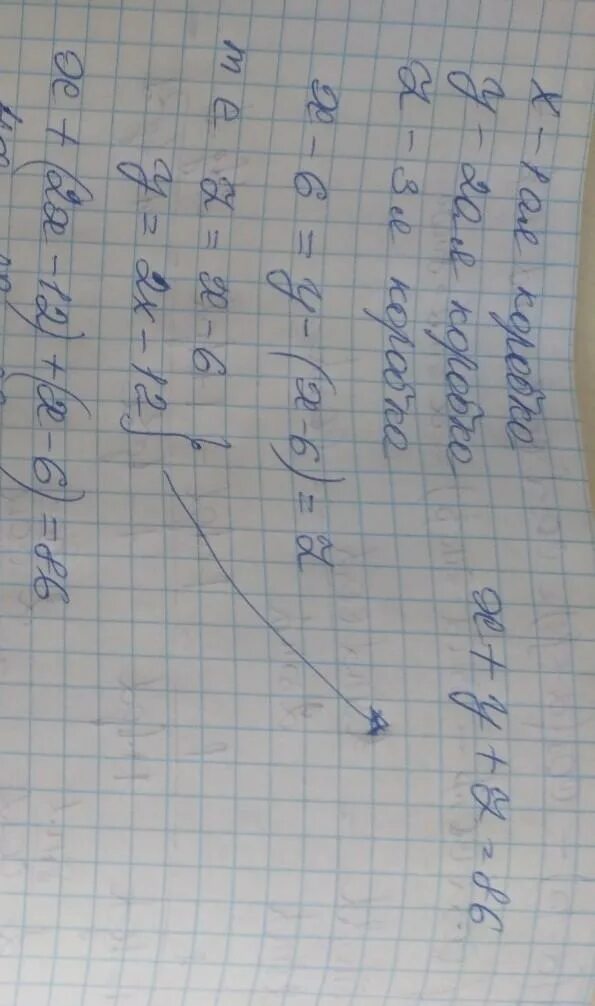 х - 1 ая коробка
у - 2ая коробка
z - 3я коробка
x + y + z = 86
x - 6 = y - (x-6) = z
т е z = x - 6 }
y = 2x - 12
x + (2x - 12) + (x - 6) = 86